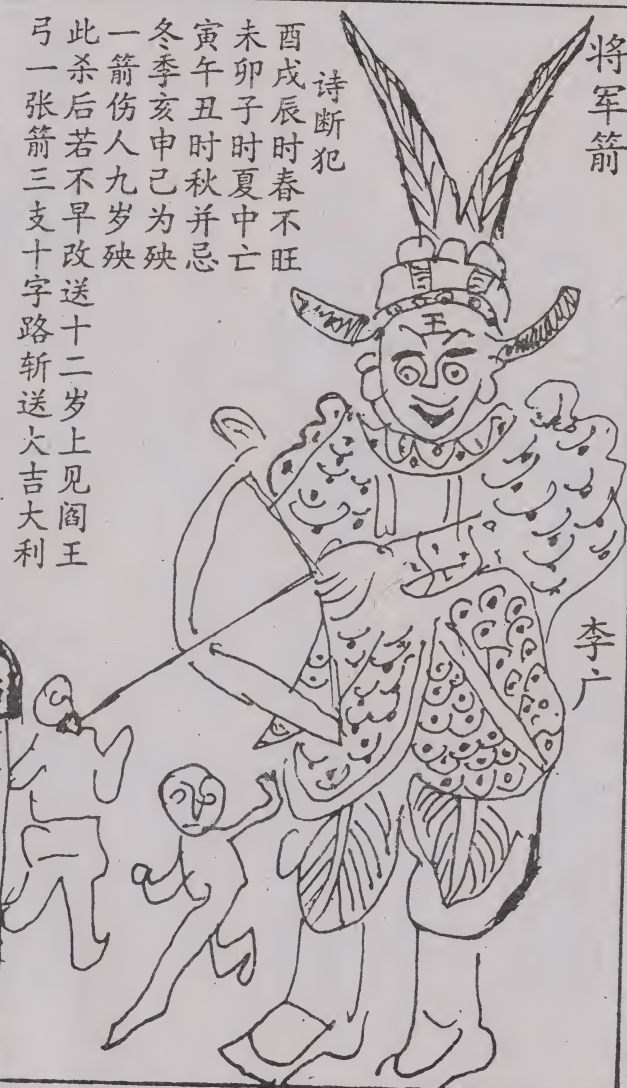 将军箭
诗断犯
酉戌辰时春不旺
未卯子时夏中亡
寅午丑时秋并忌
冬季亥申己为殃
一箭伤人九岁殃
此杀后若不早改送十二岁上见阎王
弓一张箭三支十字路斩送大吉大利
李广
王